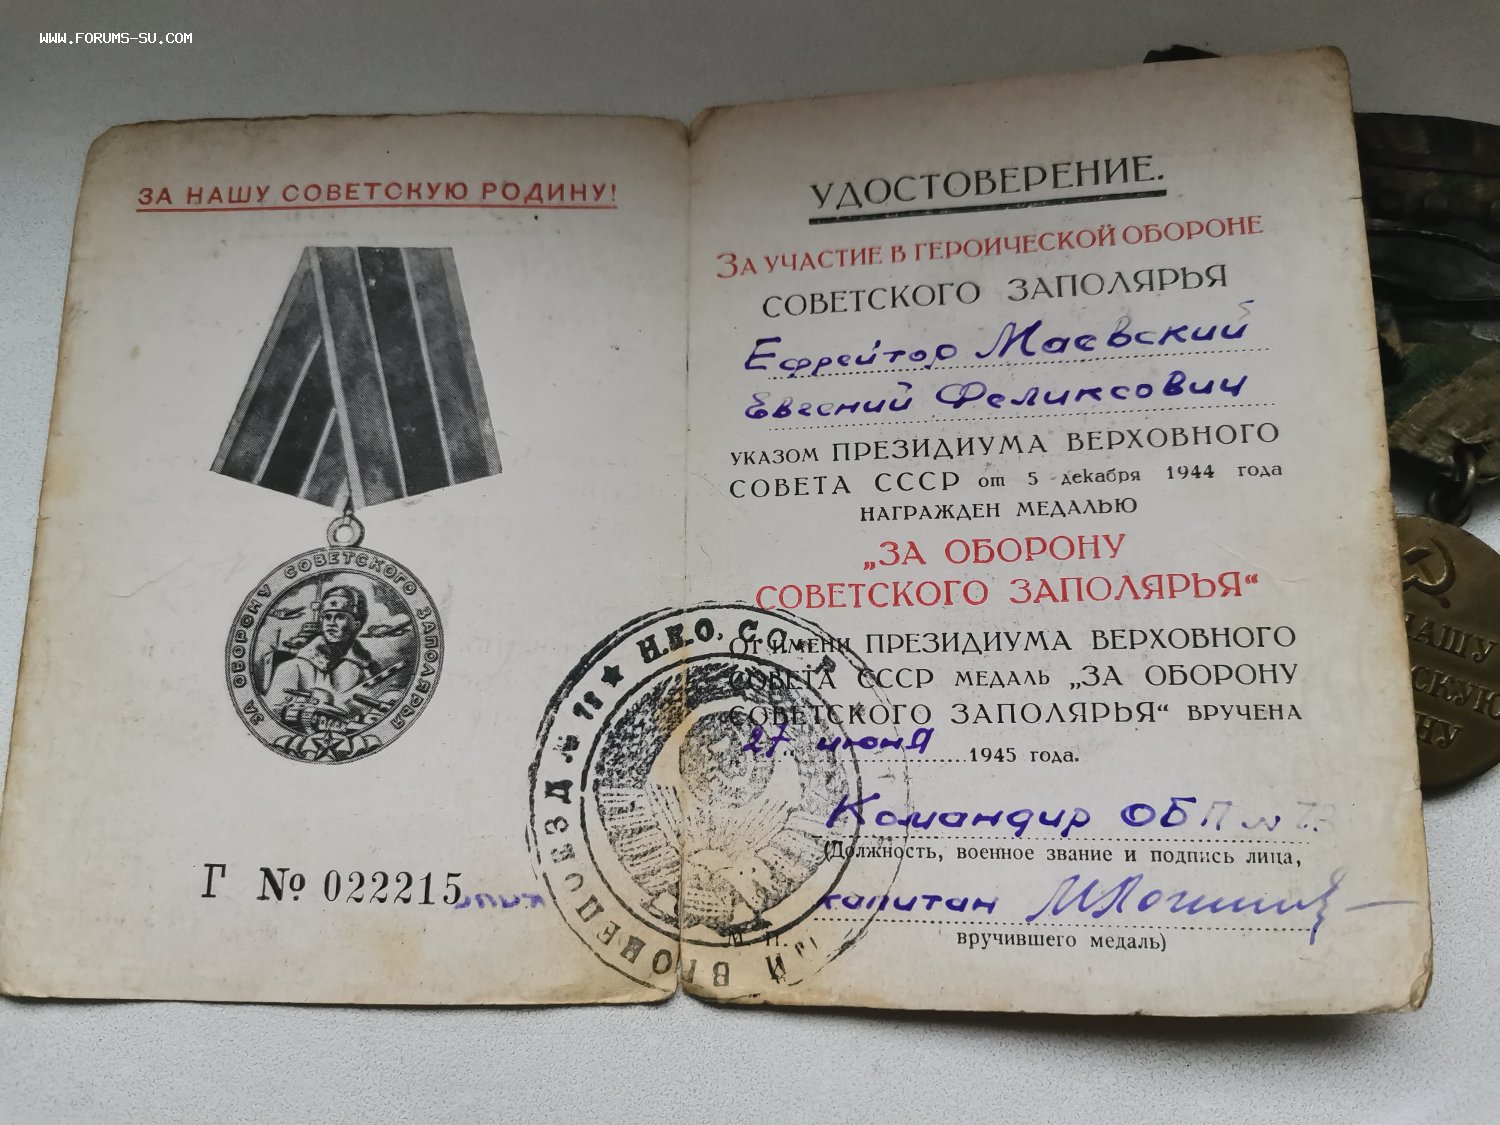 WWW.FORUMS-SU.COM
ЗА НАШУ СОВЕТСКУЮ РОДИНУ!
ЗА ОБОРОНУ СОВЕТСКОГО ЗАПОЛЯРЬЯ
Г № 022215
УДОСТОВЕРЕНИЕ.
ЗА УЧАСТИЕ В ГЕРОИЧЕСКОЙ ОБОРОНЕ
СОВЕТСКОГО ЗАПОЛЯРЬЯ
Ефрейтор Маевский
Евгений Феликсович
УКАЗОМ ПРЕЗИДИУМА ВЕРХОВНОГО
СОВЕТА СССР от 5 декабря 1944 года
НАГРАЖДЕН МЕДАЛЬЮ
„ЗА ОБОРОНУ
СОВЕТСКОГО ЗАПОЛЯРЬЯ“
ОТ ИМЕНИ ПРЕЗИДИУМА ВЕРХОВНОГО
СОВЕТА СССР МЕДАЛЬ „ЗА ОБОРОНУ
СОВЕТСКОГО ЗАПОЛЯРЬЯ“ ВРУЧЕНА
27 июня 1945 года.
Командир ОБП № 73
(Должность, военное звание и подпись лица,
капитан
вручившего медаль)
М. П.
Н.К.О. С
★ 73
АШУ
СКУЮ
НУ